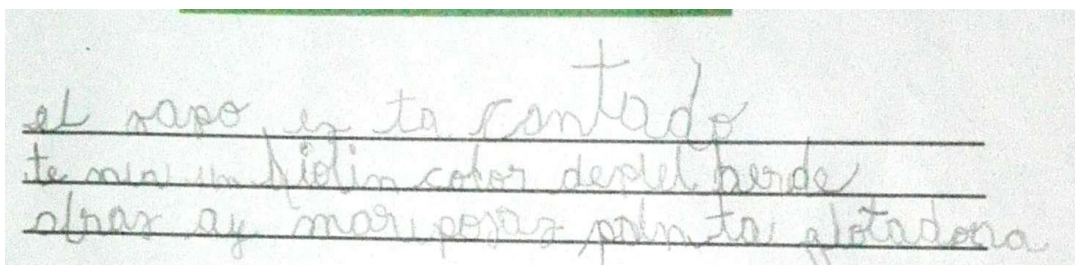 el sapo es ta contado
te nia un biolin color depiel berde
atras ay mariposas palnta flotadora